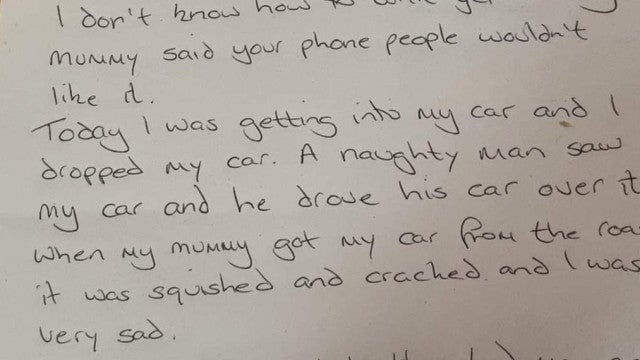 I don't know how to
mummy said your phone people wouldn't
like it.
Today I was getting into my car and I
dropped my car. A naughty man saw
my car and he drove his car over it
when my mummy got my car from the roa
it was squished and cracked and I was
very sad.